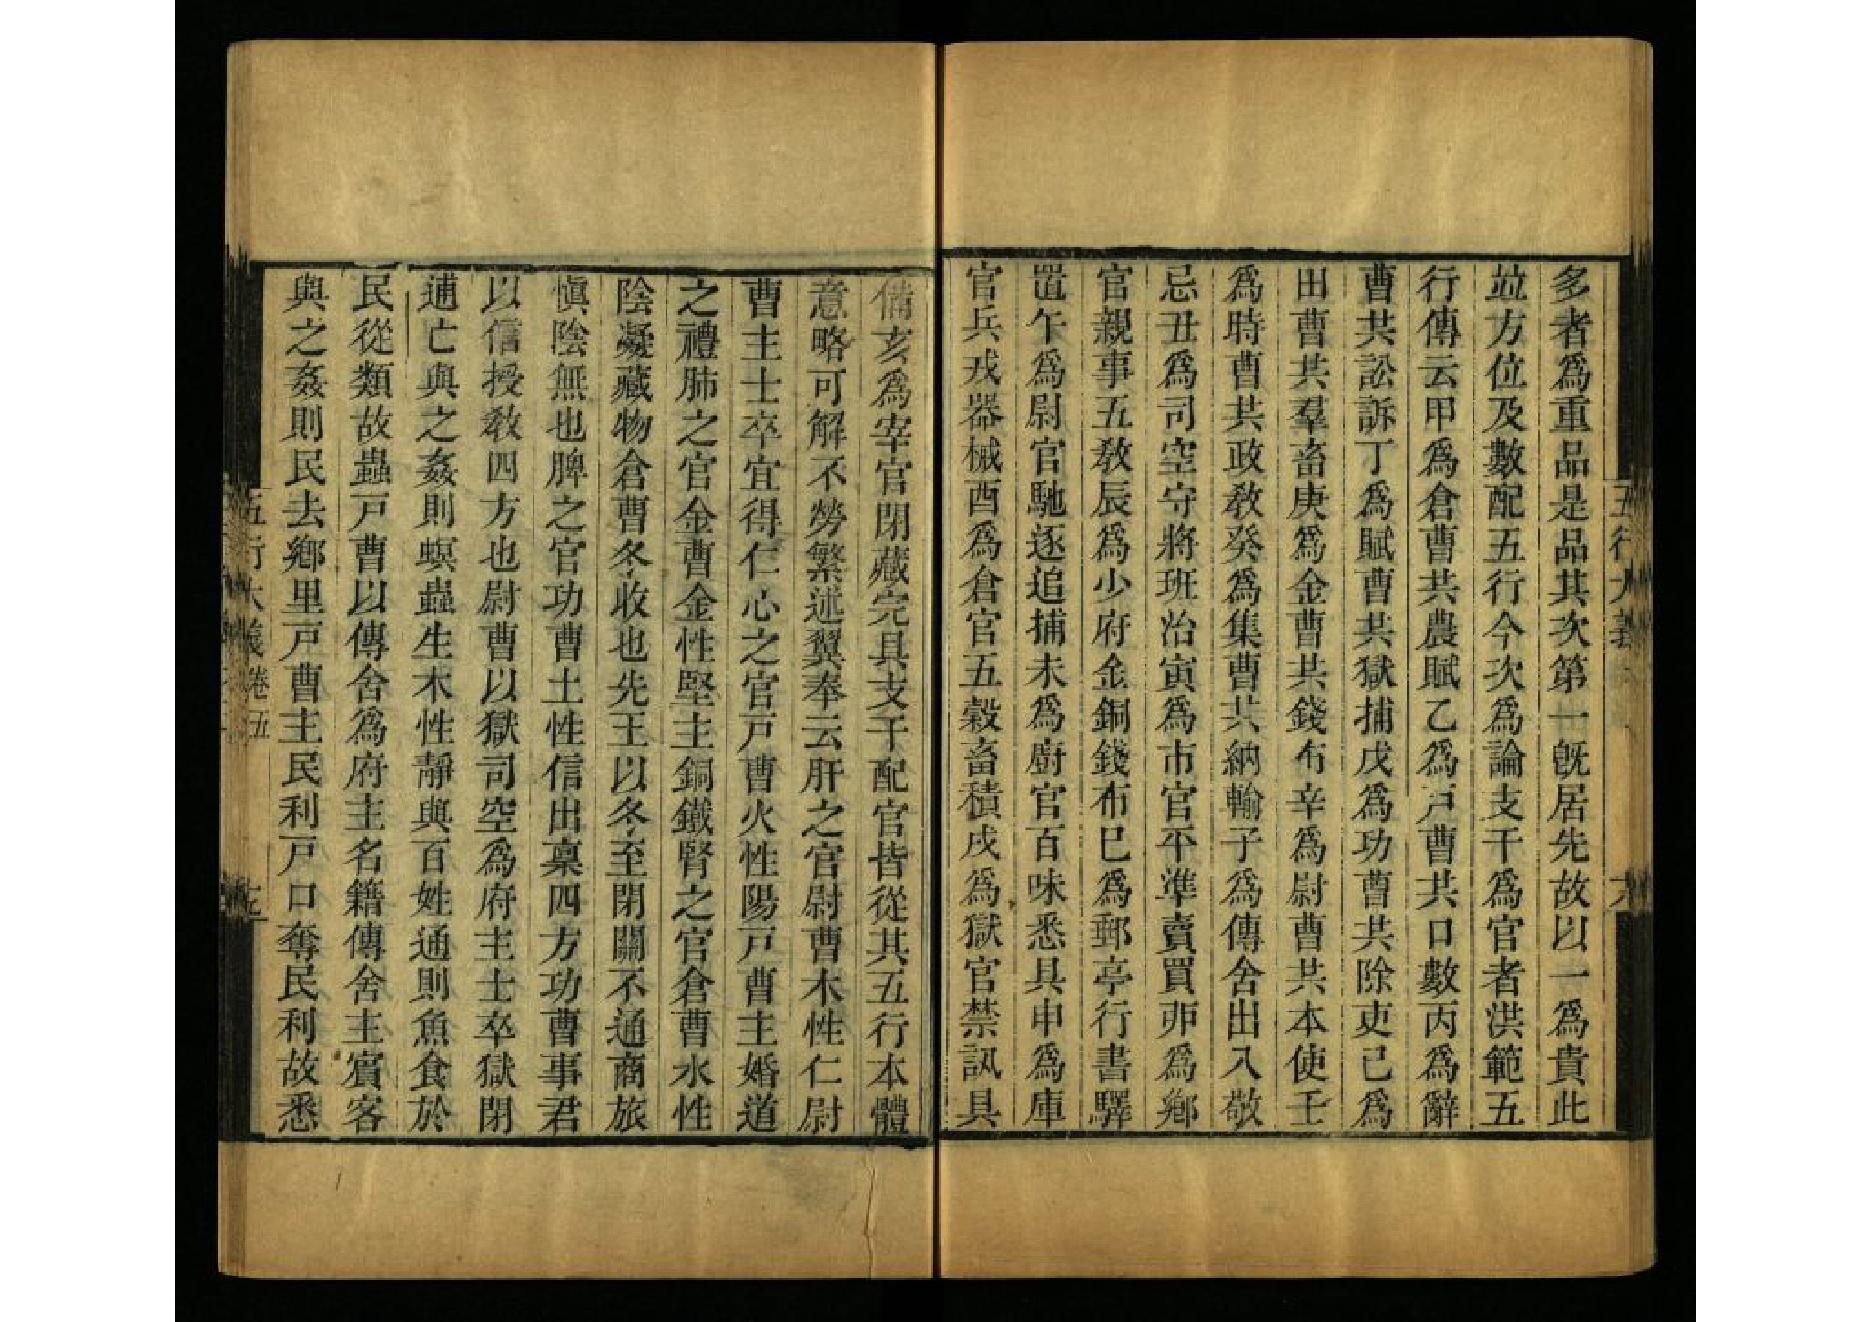 多者爲重品是品其次第一旣居先故以一爲貴此
竝方位及數配五行今次爲論支干爲官者洪範五
行傳云甲爲倉曹共農賦乙爲戸曹共口數丙爲辭
曹共訟訴丁爲賦曹共獄捕戊爲功曹共除吏己爲
田曹共羣畜庚爲金曹共錢布辛爲尉曹共本使壬
爲時曹共政敎癸爲集曹共納輸子爲傳舍出入敬
忌丑爲司空守將班治寅爲市官平準賣買卯爲鄕
官親事五敎辰爲少府金銅錢布巳爲郵亭行書驛
置午爲尉官馳逐追捕未爲廚官百味悉具申爲庫
官兵戎器械酉爲倉官五穀畜積戌爲獄官禁訊具
備亥爲宰官閉藏完具支干配官皆從其五行本體
意略可解不勞繁述翼奉云肝之官尉曹木性仁尉
曹主士卒宜得仁心之官戸曹火性陽戸曹主婚道
之禮肺之官金曹金性堅主銅鐵腎之官倉曹水性
陰凝藏物倉曹冬收也先王以冬至閉關不通商旅
愼陰無也脾之官功曹土性信出稟四方功曹事君
以信授敎四方也尉曹以獄司空爲府主士卒獄閉
逋亡與之姦則螟蟲生木性靜與百姓通則魚食於
民從類故蟲戸曹以傳舍爲府主名籍傳舍主賓客
與之姦則民去鄕里戸曹主民利戸口奪民利故悉
五行大義卷五